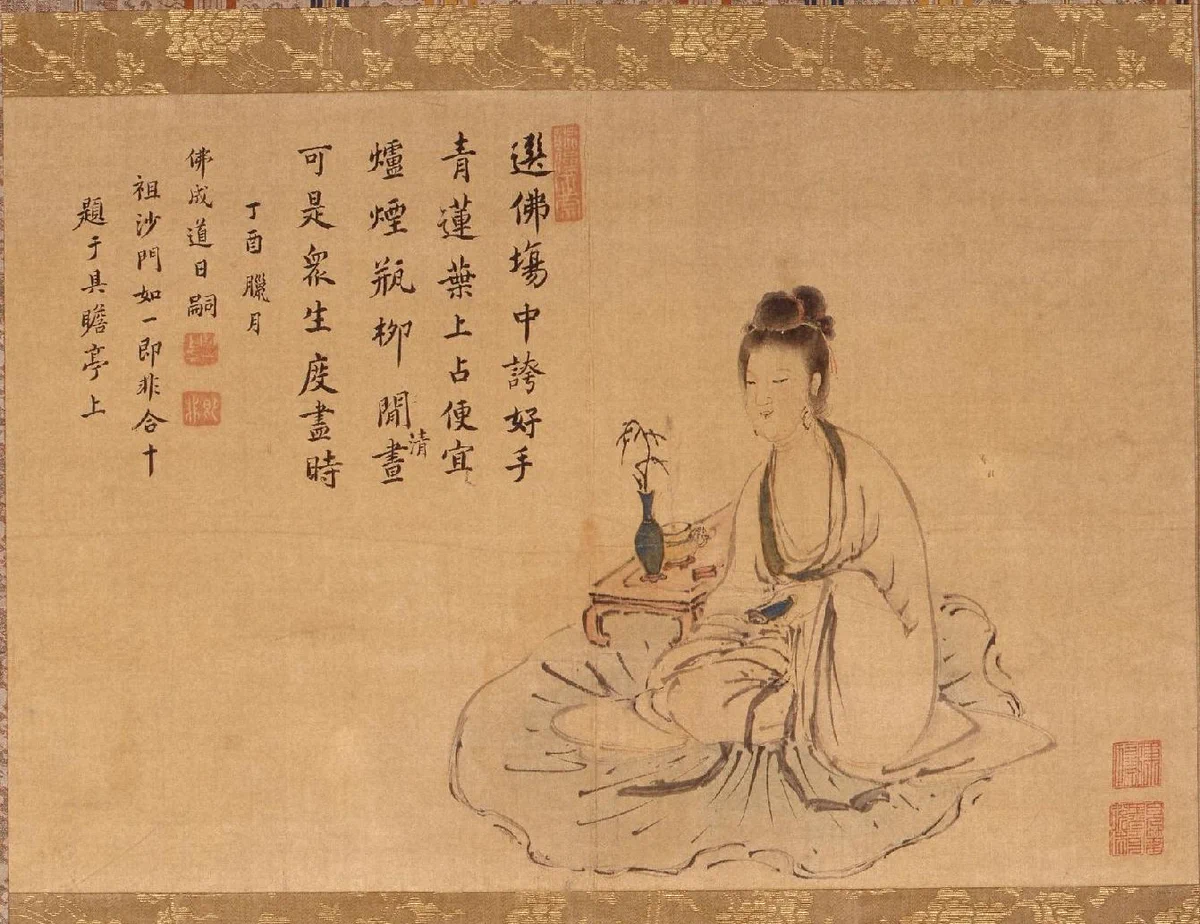 選佛塲中誇好手
青蓮葉上占便宜
爐煙瓶柳閒清晝
可是衆生度盡時
丁酉臘月
佛成道日嗣
祖沙門如一即非合十
題于具瞻亭上